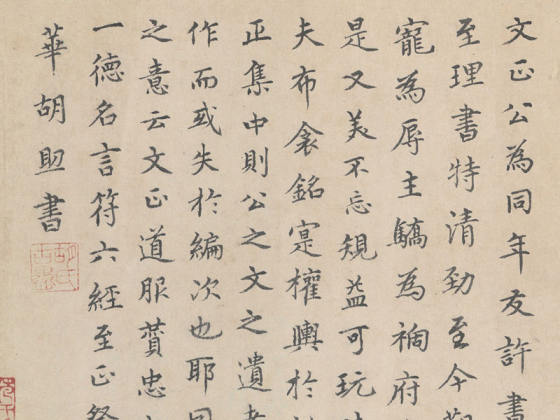 文正公為同年友許書
至理書特清勁至今
寵為辱主驕為禍府
是又美不忘規益可玩
夫布衾銘寔權輿於
正集中則公之文之遺
作而或失於編次也耶
之意云文正道服贊忠
一德名言符六經至正
華胡助書
胡氏古愚